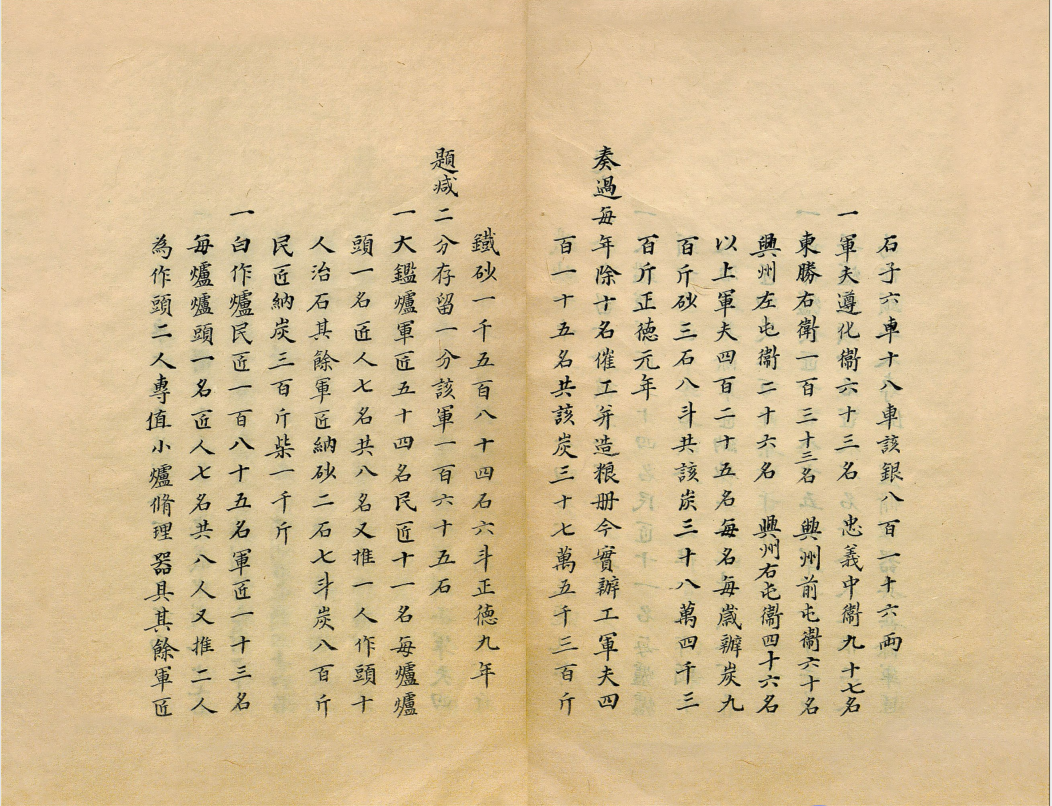 石子六車十八車該銀八百一十六両
一軍夫遵化衞六十三名　忠義中衞九十七名
東勝右衞一百三十三名　興州前屯衞六十名
興州左屯衞二十六名　興州右屯衞四十六名
以上軍夫四百二十五名每名每歲辦炭九
百斤砂三石八斗共該炭三十八萬四千三
百斤正德元年
奏過每年除十名催工并造粮册今實辦工軍夫四
百一十五名共該炭三十七萬五千三百斤
鐵砂一千五百八十四石六斗正德九年
題减二分存留一分該軍一百六十五石
一大鑑爐軍匠五十四名民匠十一名每爐爐
頭一名匠人七名共八名又推一人作頭十
人治石其餘軍匠納砂二石七斗炭八百斤
民匠納炭三百斤柴一千斤
一白作爐民匠一百八十五名軍匠一十三名
每爐爐頭一名匠人七名共八人又推二人
為作頭二人專值小爐脩理器具其餘軍匠